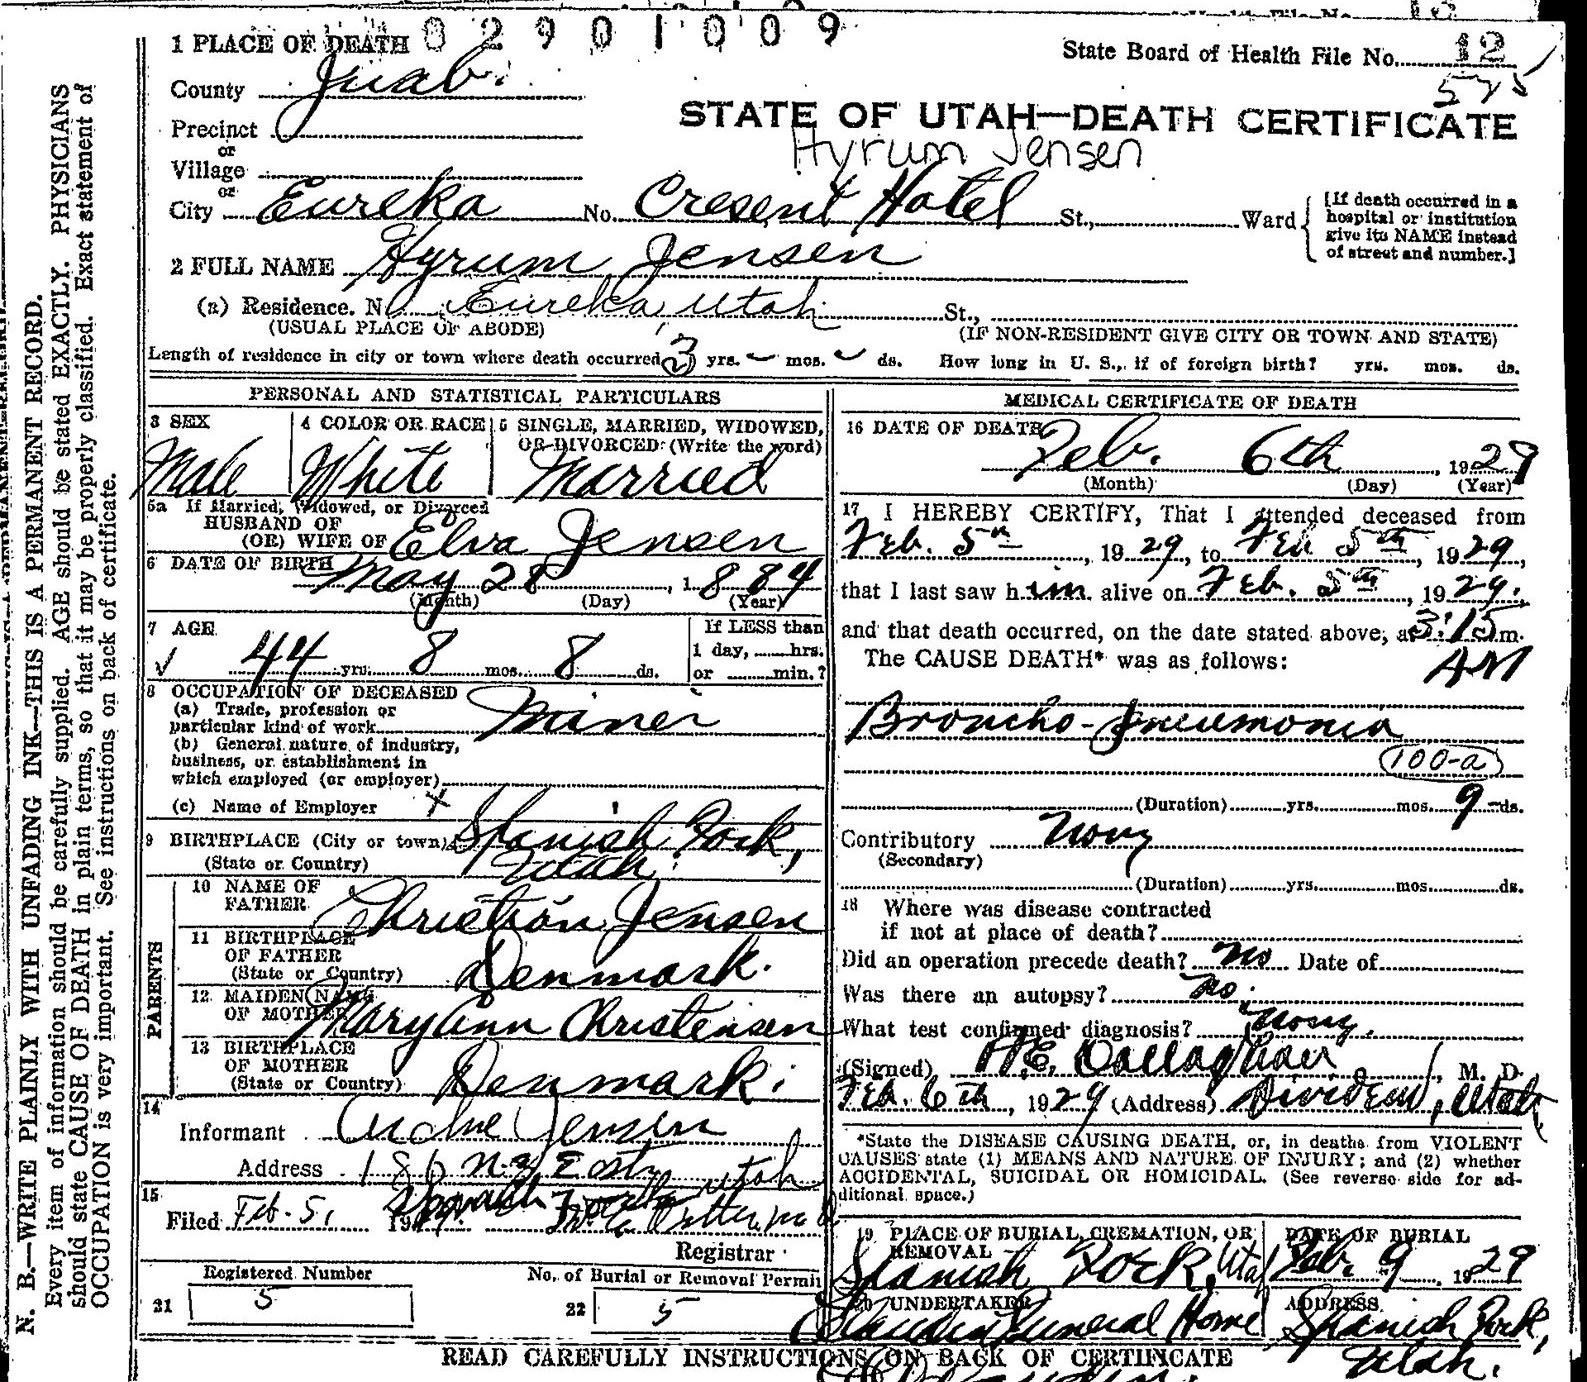 82901009
State Board of Health File No. 12
575
1 PLACE OF DEATH
County Juab.
STATE OF UTAH—DEATH CERTIFICATE
Hyrum Jensen
Precinct
or
Village
or
City Eureka No. Cresent Hotel St., Ward
[If death occurred in a hospital or institution give its NAME instead of street and number.]
2 FULL NAME Hyrum Jensen
(a) Residence. No. Eureka Utah St.,
(USUAL PLACE OF ABODE) (IF NON-RESIDENT GIVE CITY OR TOWN AND STATE)
Length of residence in city or town where death occurred 3 yrs. mos. ds. How long in U. S., if of foreign birth? yrs. mos. ds.
PERSONAL AND STATISTICAL PARTICULARS
3 SEX
Male
4 COLOR OR RACE
White
5 SINGLE, MARRIED, WIDOWED,
OR DIVORCED (Write the word)
Married
5a If Married, Widowed, or Divorced
HUSBAND OF
(OR) WIFE OF Elva Jensen
6 DATE OF BIRTH May 28, 1884
(Month) (Day) (Year)
7 AGE
44 yrs. 8 mos. 8 ds.
If LESS than
1 day, hrs.
or min.?
8 OCCUPATION OF DECEASED
(a) Trade, profession or
particular kind of work Miner
(b) General nature of industry,
business, or establishment in
which employed (or employer)
(c) Name of Employer
9 BIRTHPLACE (City or town) Spanish Fork,
(State or Country) Utah.
PARENTS
10 NAME OF
FATHER Christian Jensen
11 BIRTHPLACE
OF FATHER
(State or Country) Denmark.
12 MAIDEN NAME
OF MOTHER Mary Ann Christensen
13 BIRTHPLACE
OF MOTHER
(State or Country) Denmark.
14
Informant Jensen
Address 186 N. 3 East
Spanish Fork Utah
15
Filed Feb. 5, 19
Registrar
Registered Number
21 5
No. of Burial or Removal Permit
22 5
MEDICAL CERTIFICATE OF DEATH
16 DATE OF DEATH
Feb. 6th, 1929
(Month) (Day) (Year)
17 I HEREBY CERTIFY, That I attended deceased from
Feb. 5th, 1929, to Feb 5th, 1929,
that I last saw him alive on Feb. 5th, 1929.
and that death occurred, on the date stated above, at 3:15 m.
AM
The CAUSE DEATH* was as follows:
Broncho-Pneumonia
100-a
(Duration) yrs. mos. 9 ds.
Contributory None
(Secondary)
(Duration) yrs. mos. ds.
18 Where was disease contracted
if not at place of death?
Did an operation precede death? No Date of
Was there an autopsy? No.
What test confirmed diagnosis? None.
(Signed) Callaghan, M. D.
Feb. 6th, 1929 (Address) Dividend, Utah
*State the DISEASE CAUSING DEATH, or, in deaths from VIOLENT
CAUSES state (1) MEANS AND NATURE OF INJURY; and (2) whether
ACCIDENTAL, SUICIDAL OR HOMICIDAL. (See reverse side for ad-
ditional space.)
19 PLACE OF BURIAL, CREMATION, OR
REMOVAL
Spanish Fork, Utah
DATE OF BURIAL
Feb. 9 1929
20 UNDERTAKER
Claudin Funeral Home
ADDRESS
Spanish Fork,
Utah.
READ CAREFULLY INSTRUCTIONS ON BACK OF CERTIFICATE
N. B.—WRITE PLAINLY WITH UNFADING INK—THIS IS A PERMANENT RECORD.
Every item of information should be carefully supplied. AGE should be stated EXACTLY. PHYSICIANS
should state CAUSE OF DEATH in plain terms, so that it may be properly classified. Exact statement of
OCCUPATION is very important. See instructions on back of certificate.